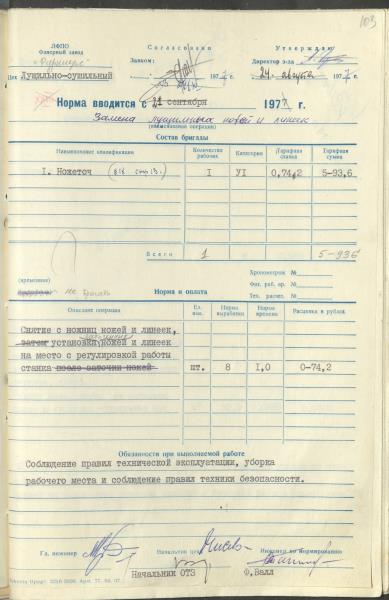 103
ЛФПО
Фанерный завод
Цех Лущильно-сушильный
Согласовано
Завком:
197 г.
Утверждаю
Директор з-да
24 августа 197 г.
Норма вводится с 21 сентября 197 г.
Замена лущильных ножей и линеек
(наименование операции)
Состав бригады
Наименование квалификации
Количество рабочих
Категория
Тарифная ставка
Тарифная сумма
I. Ножеточ
I
УI
0,74,2
5-93,6
Всего 1 5-936
Хронометраж №
Фиг. раб. вр. №
Тех. расчет. №
Норма и оплата
Описание операции
Ед. изм.
Норма выработки
Норма времени
Расценка в рублях
Снятие с ножниц ножей и линеек,
затем установка ножей и линеек
на место с регулировкой работы
станка после заточки ножей
шт.
8
I,0
0-74,2
Обязанности при выполняемой работе
Соблюдение правил технической эксплуатации, уборка
рабочего места и соблюдение правил техники безопасности.
Гл. инженер
Начальник цеха
Инженер по нормированию
Начальник ОТЗ
Ф.Валл